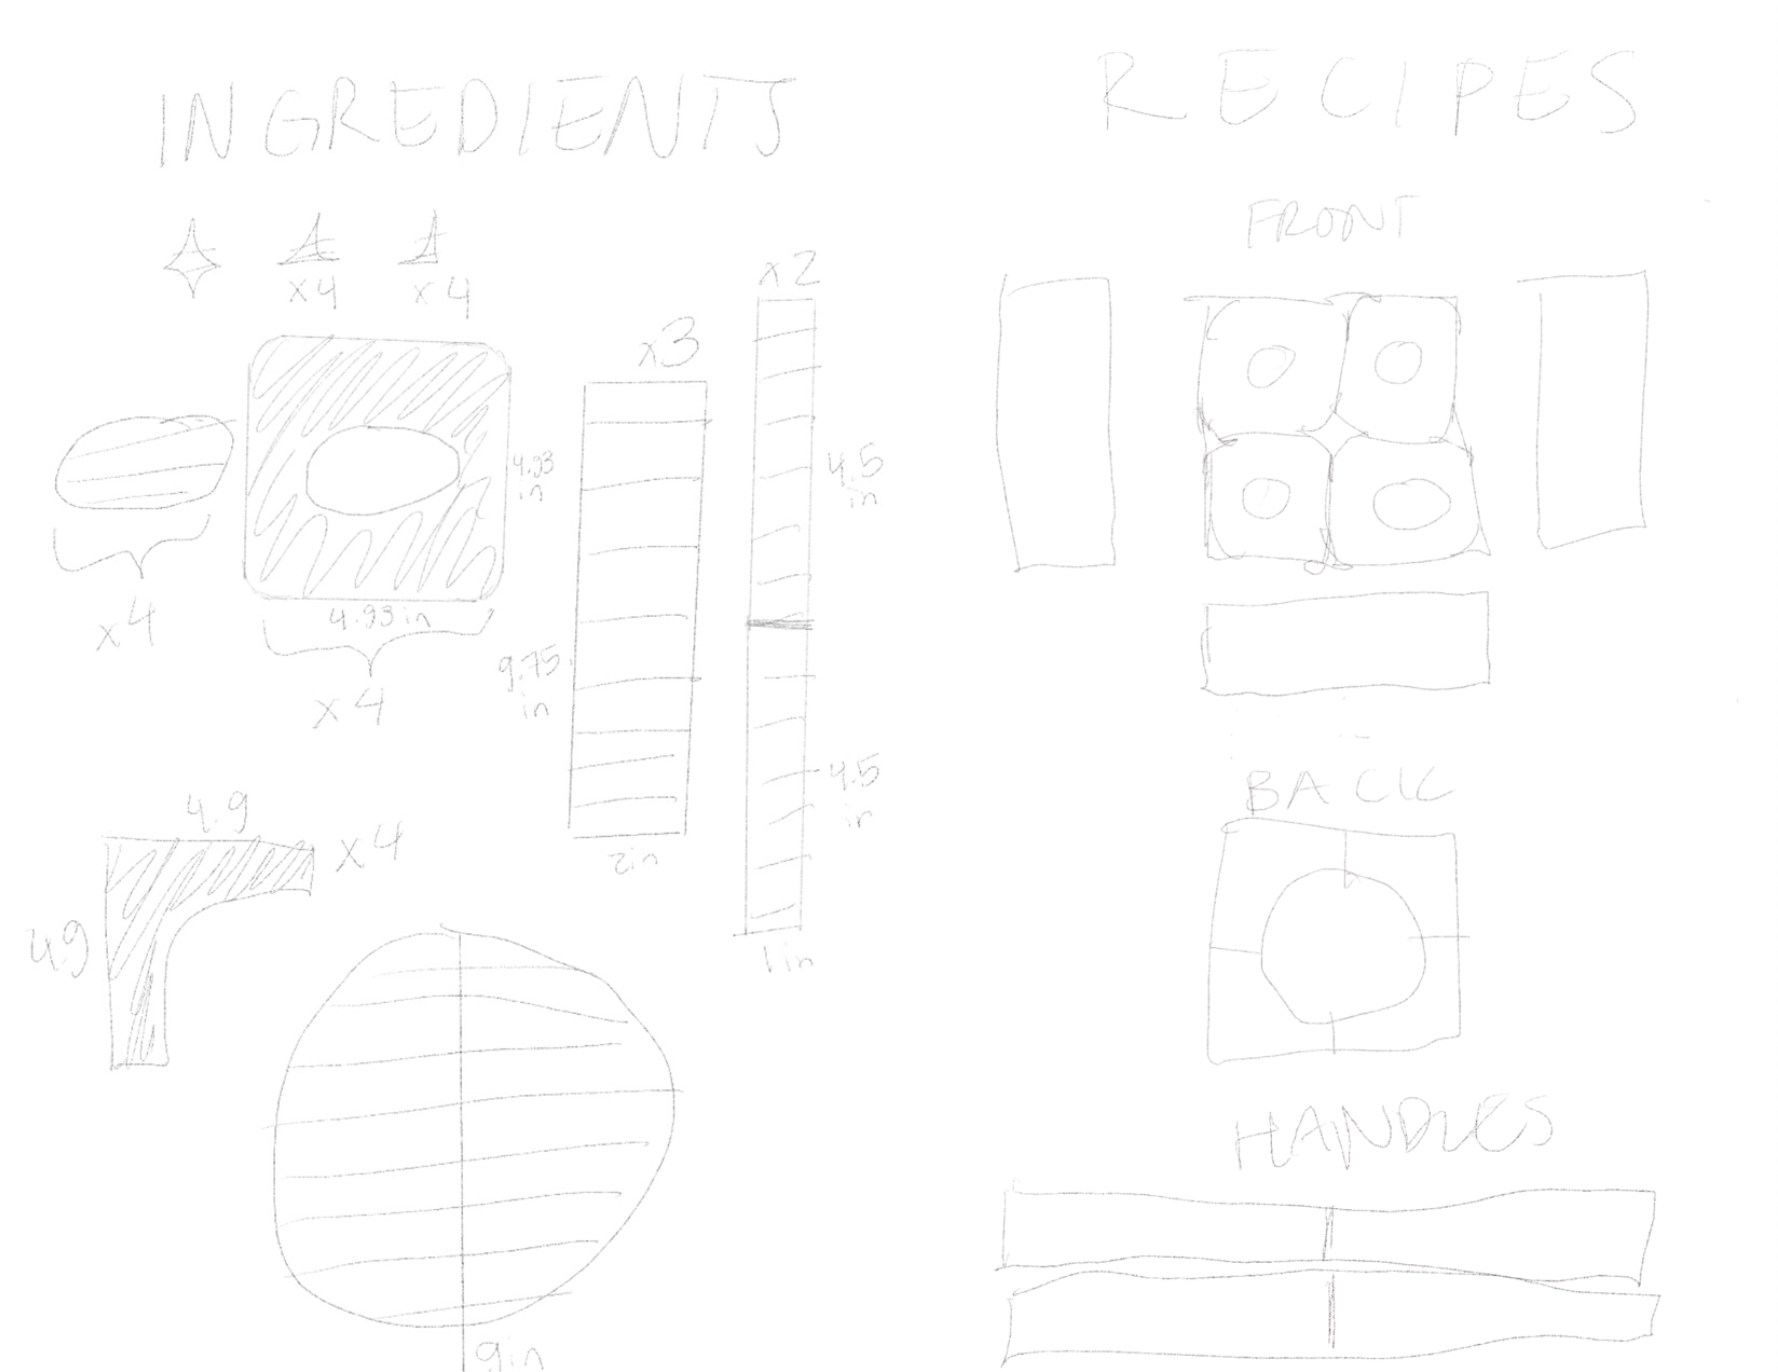 INGREDIENTS
x4 x4
x2
x3
4.93
in
4.93 in
x4
x4
4.5
in
9.75
in
4.5
in
2in
1in
4.9
x4
4.9
9in
RECIPES
FRONT
BACK
HANDLES